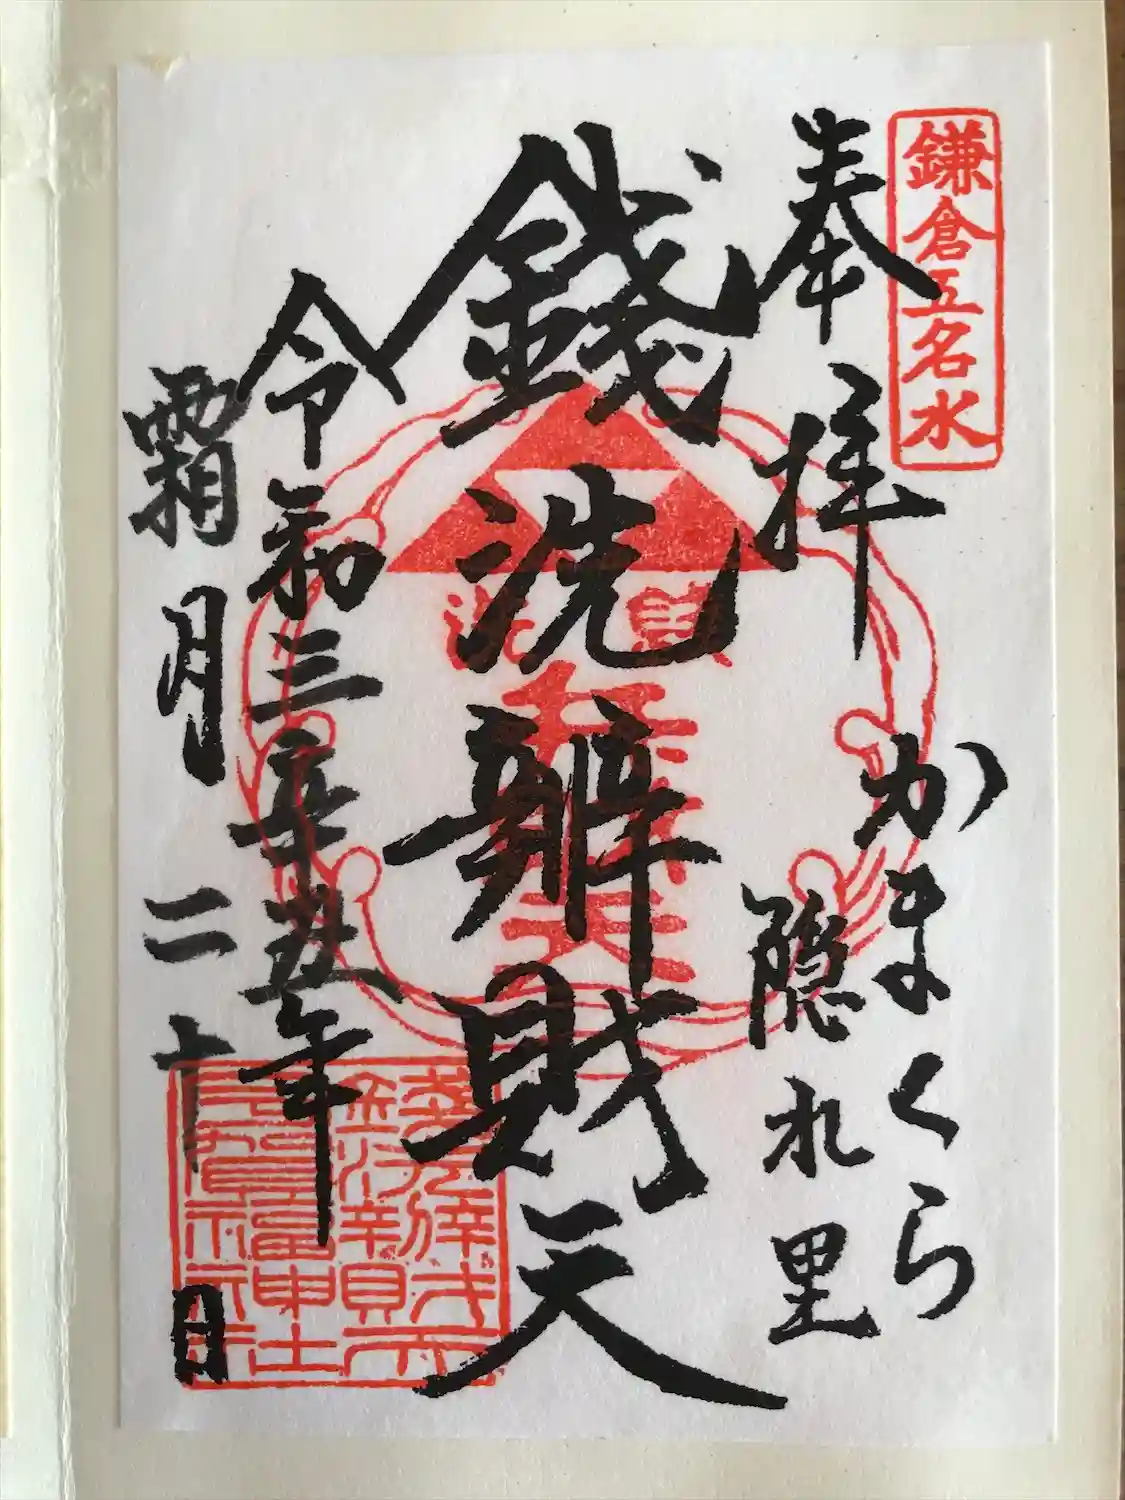 鎌倉五名水
奉拝
かまくら
隠れ里
銭洗辨財天
令和三辛丑年
霜月二十日